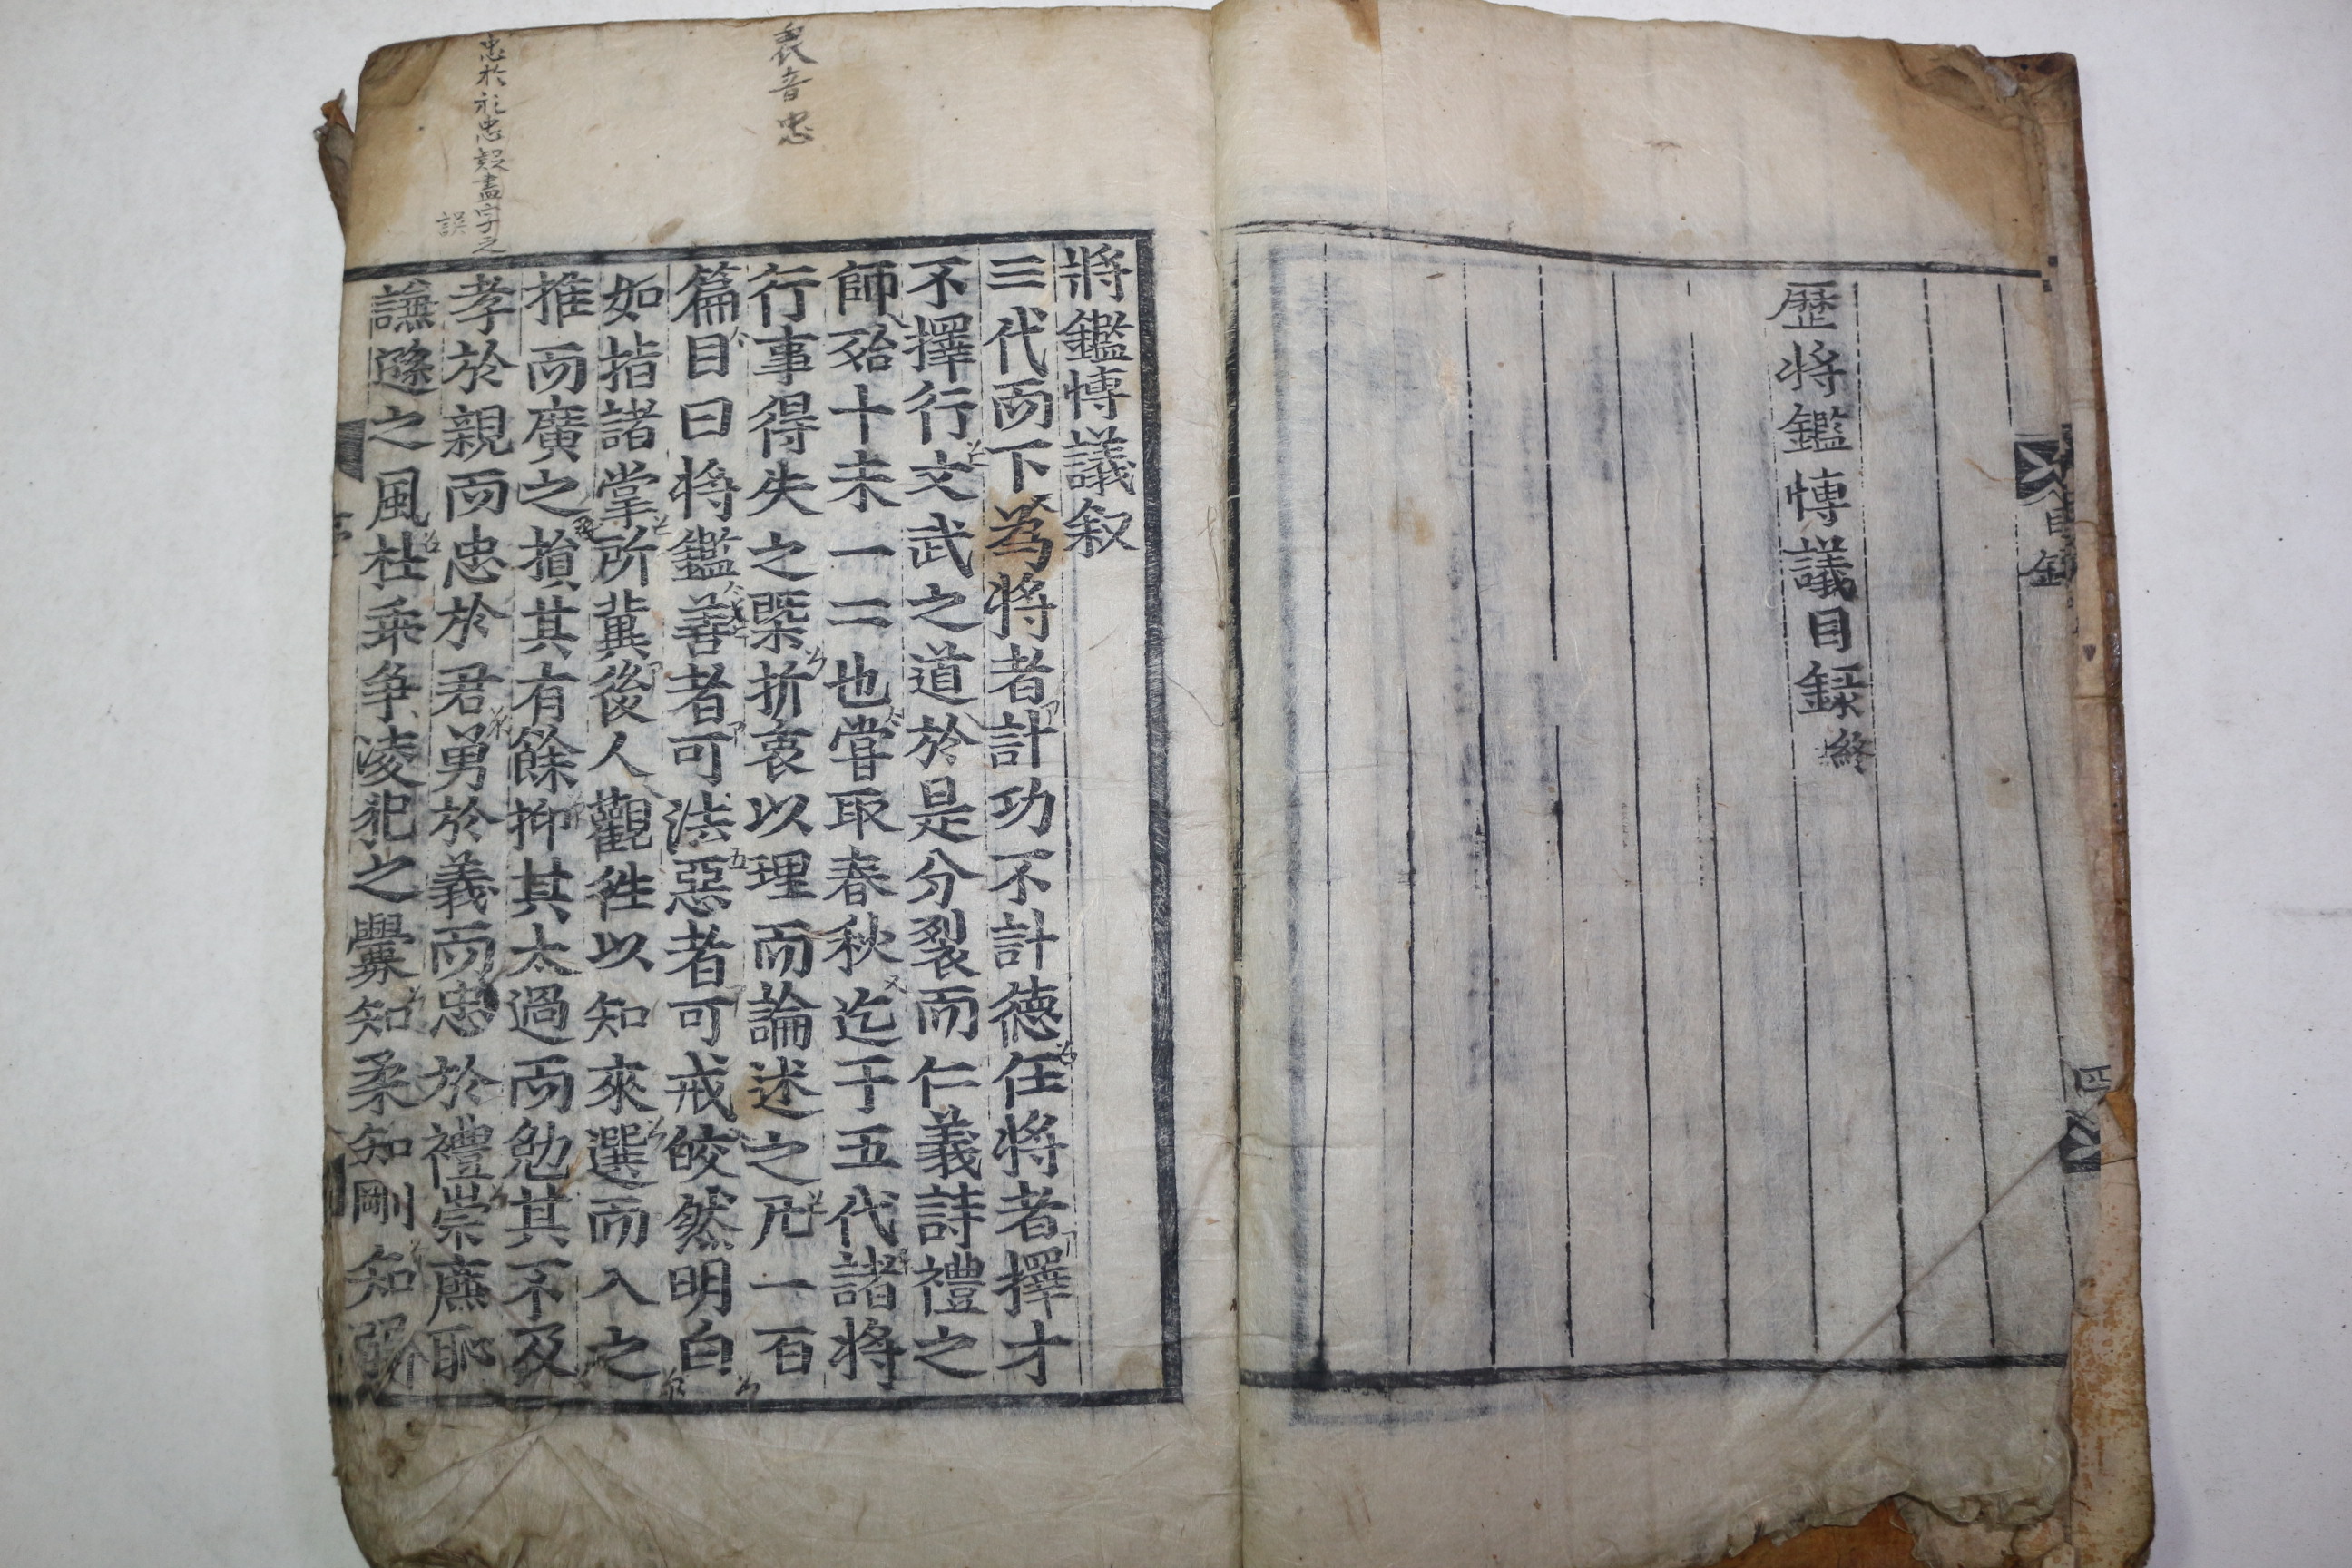 歷將鑑愽議目錄終
目錄
四
將鑑愽議叙
三代而下為將者計功不計德任將者擇才
不擇行文武之道於是分裂而仁義詩禮之
師殆十未一二也嘗取春秋迄于五代諸將
行事得失之槩折衷以理而論述之凡一百
篇目曰將鑑善者可法惡者可戒皎然明白
如指諸掌所冀後人觀徃以知來選而入之
推而廣之損其有餘抑其太過而勉其不及
孝於親而忠於君勇於義而忠於禮崇廉恥
謙遜之風杜乖争凌犯之釁知柔知剛知弱
衷音忠
忠於礼忠疑盡字之
誤